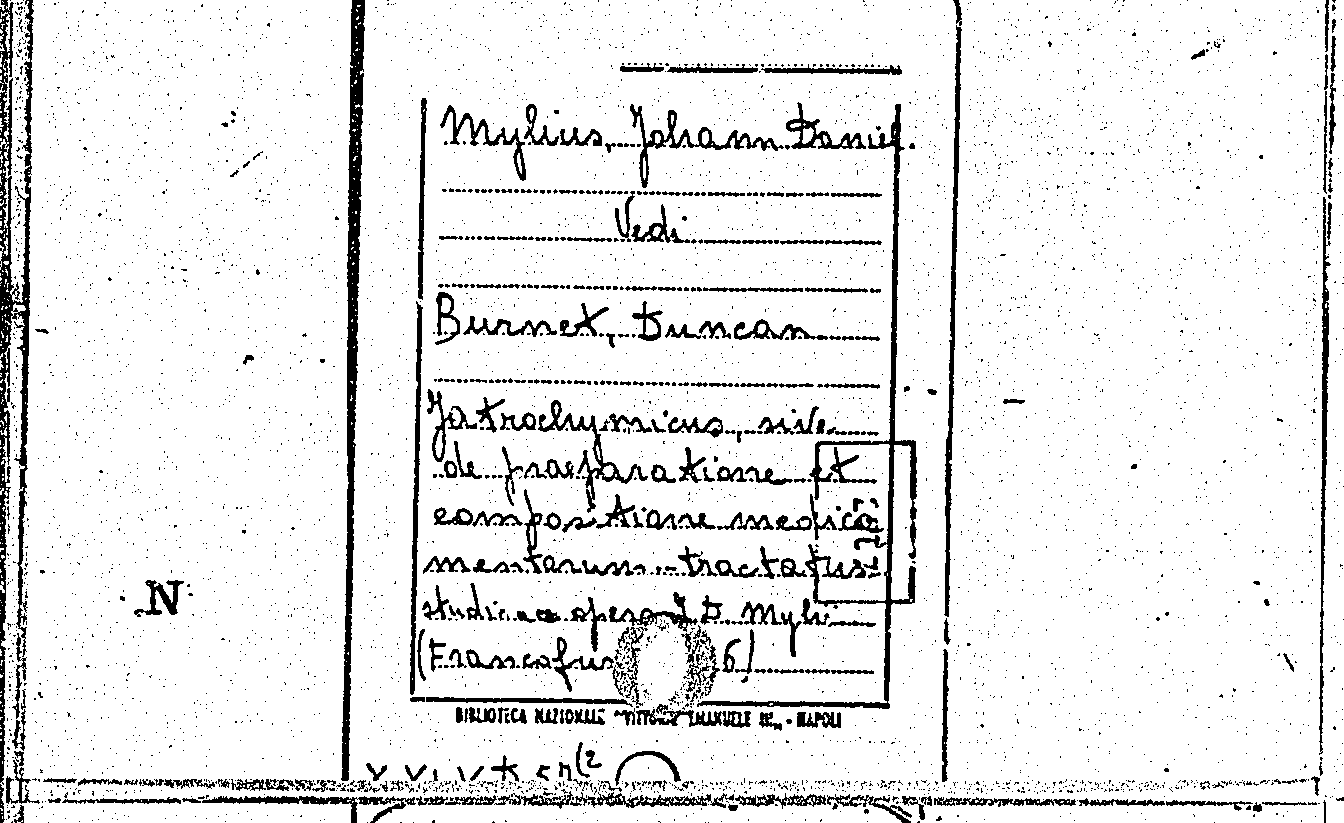 Mylius, Johann Daniel.
Vedi
Burnet, Duncan
Jatrochymicus, sive
de praeparatione et
compositione medica
mentorum tractatus:
studio ac opera J. D. Myli
(Francofur 6)
BIBLIOTECA NAZIONALE "VITTORIO EMANUELE III" - NAPOLI
N